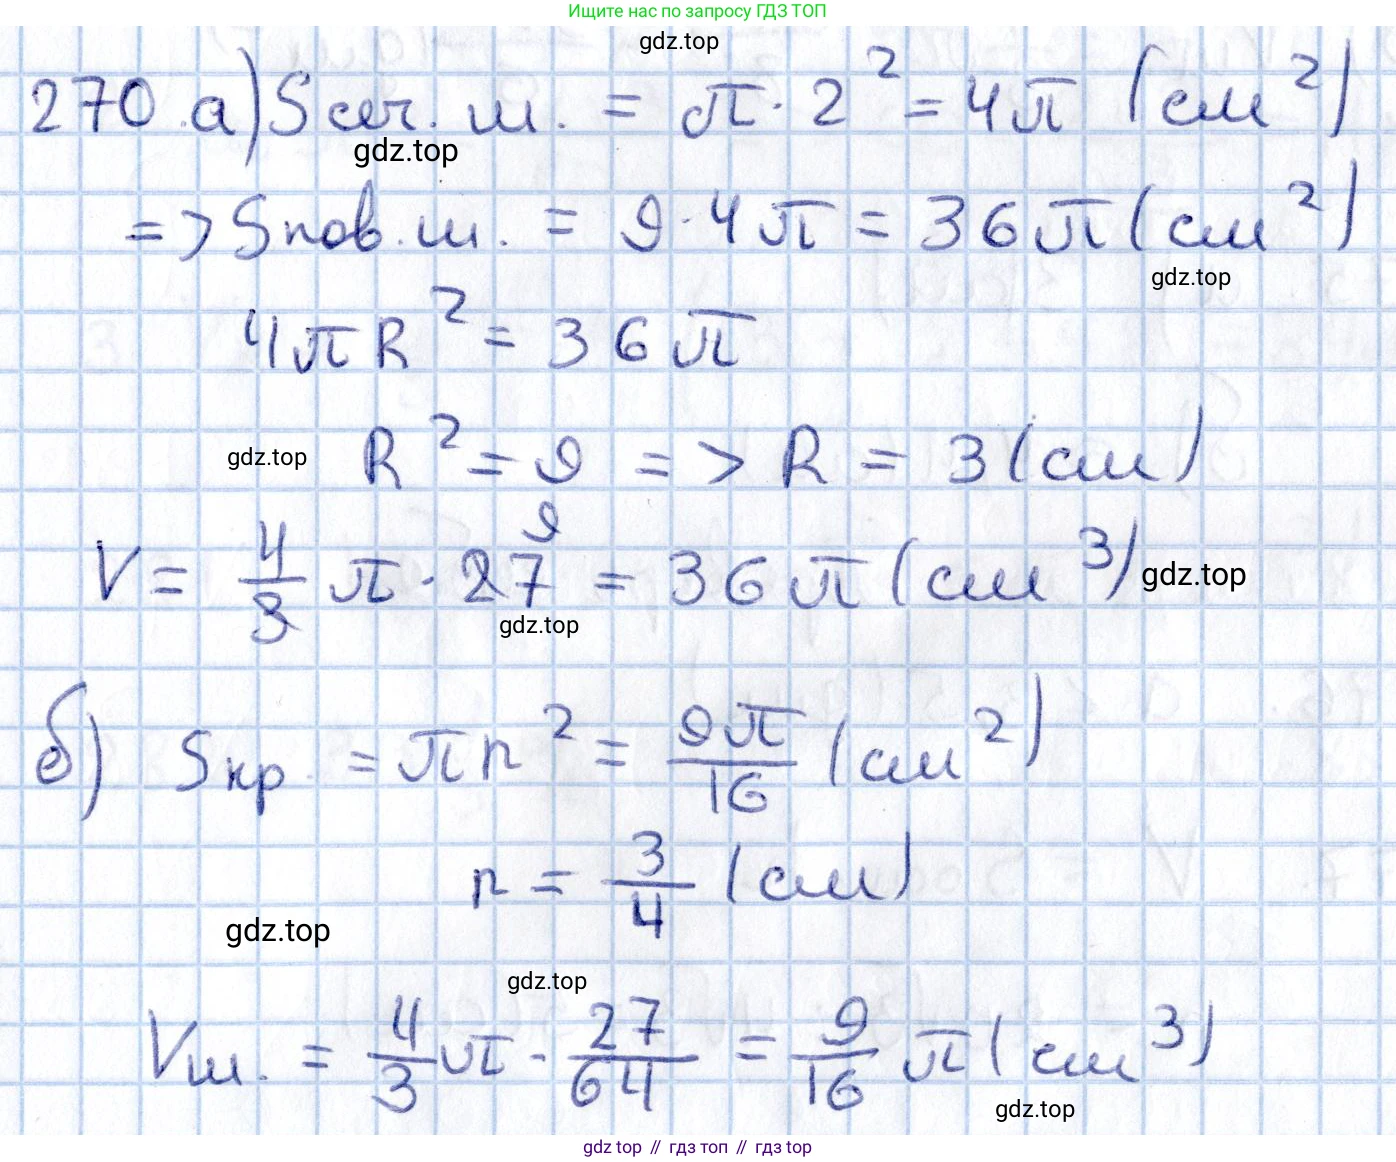 Ищите нас по запросу ГДЗ ТОП
gdz.top
270.а) Sсеч. ш. = π · 2² = 4π (см²)
gdz.top
=> Sпов. ш. = 9 · 4π = 36π (см²)
gdz.top
4πR² = 36π
gdz.top R² = 9 => R = 3 (см)
9
V = 4/3 π · 27 = 36π (см³) gdz.top
gdz.top
б) Sкр. = πr² = 9π/16 (см²)
r = 3/4 (см)
gdz.top
gdz.top
Vш. = 4/3 π · 27/64 = 9/16 π (см³)
gdz.top
gdz top // гдз топ // гдз top